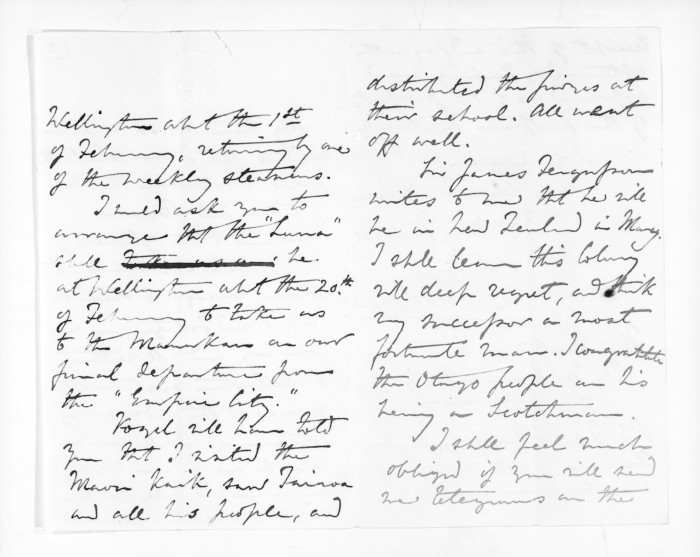 Wellington abt the 1st
of February, returning by one
of the weekly steamers.
I would ask you to
arrange tht the "Luna"
shll be
at Wellington abt the 20th
of February to take us
to the Manukau on our
final departure from
the "Empire City."
Vogel will have told
you tht I visited the
Maori Kaik, saw Taiaroa
and all his people, and
distributed the prizes at
their school. All went
off well.
Sir James Fergusson
writes to me tht he will
be in New Zealand in March.
I shll leave this Colony
with deep regret, and think
my successor a most
fortunate man. I congratulate
the Otago people on his
being a Scotchman.
I shll feel much
obliged if you will send
me telegrams on the